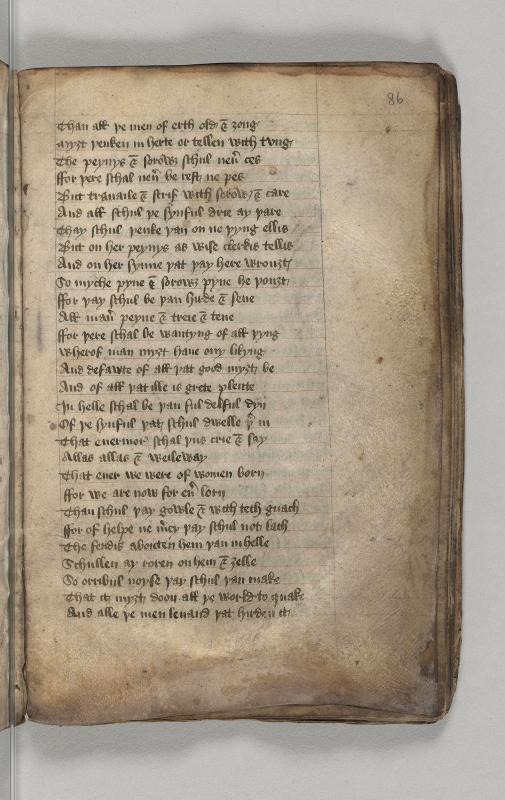 86
Than all þe men of erth old & ȝong
Myȝt þenken in herte or tellen with tung
The peynys & sorows schul neũ ces
ffor þere schal neũ be rest ne pes
But trauaile & strif with sorow & care
And all schul þe synful drie ay þare
Thay schul þenke þan on no þyng ellis
But on her peynys as wise clerkis tellis
And on her synne þat þay here wrouȝt
So myche pyne & sorows þyne he þouȝt
ffor þay schul be þan hirde & sene
All man̄ peyne & treie & tene
ffor þere schal be wantyng of all þyng
Wherof man myȝt haue ony likyng
And defawte of all þat good myȝt be
And of all þat ille is grete plente
In helle schal be þan ful delful dyn
Of þe synful þat schul dwelle þ in
That euermor schal þus crie & say
Allas allas & weileway
That euer we were of women born
ffor we are now for eũ lorn
Than schul þay gowle & with teth gnach
ffor of helpe ne m̃cy þay schul not lach
The fendis abouten hem þan in helle
Schullen ay roren on hem & ȝelle
So orribul noyse þay schul þan make
That it myȝt doon all þe world to quake
And alle þe men leuand þat hirden it